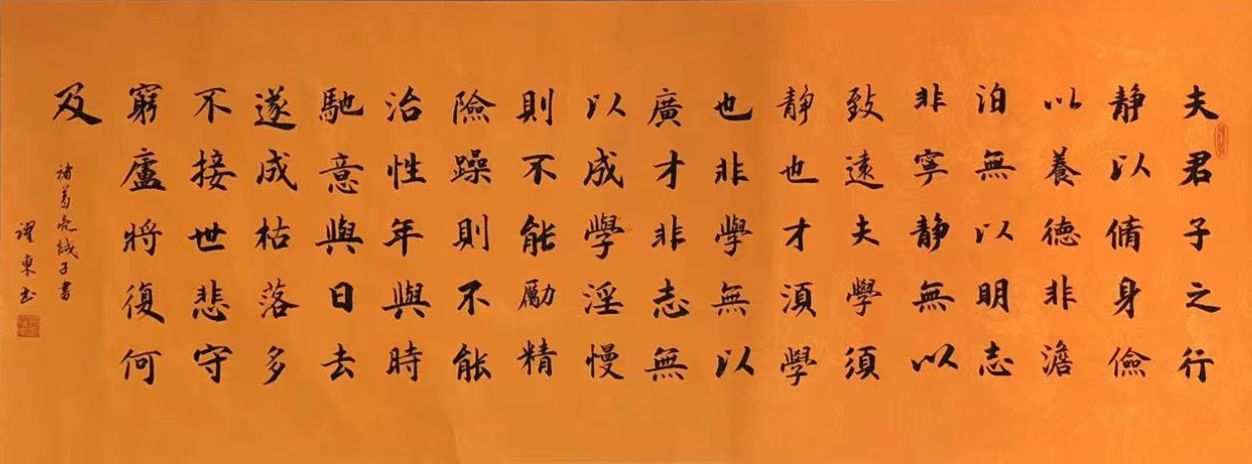 夫君子之行
静以脩身儉
以養德非澹
泊無以明志
非寧静無以
致遠夫學須
静也才須學
也非學無以
廣才非志無
以成學淫慢
則不能勵精
險躁則不能
治性年與時
馳意與日去
遂成枯落多
不接世悲守
窮廬將復何
及
諸葛亮誡子書
躍東書